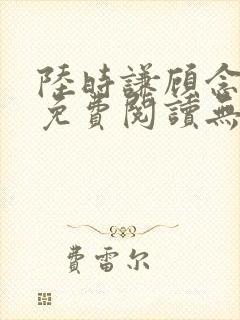 陸時謙顧念
免費閱讀無
費雷尔